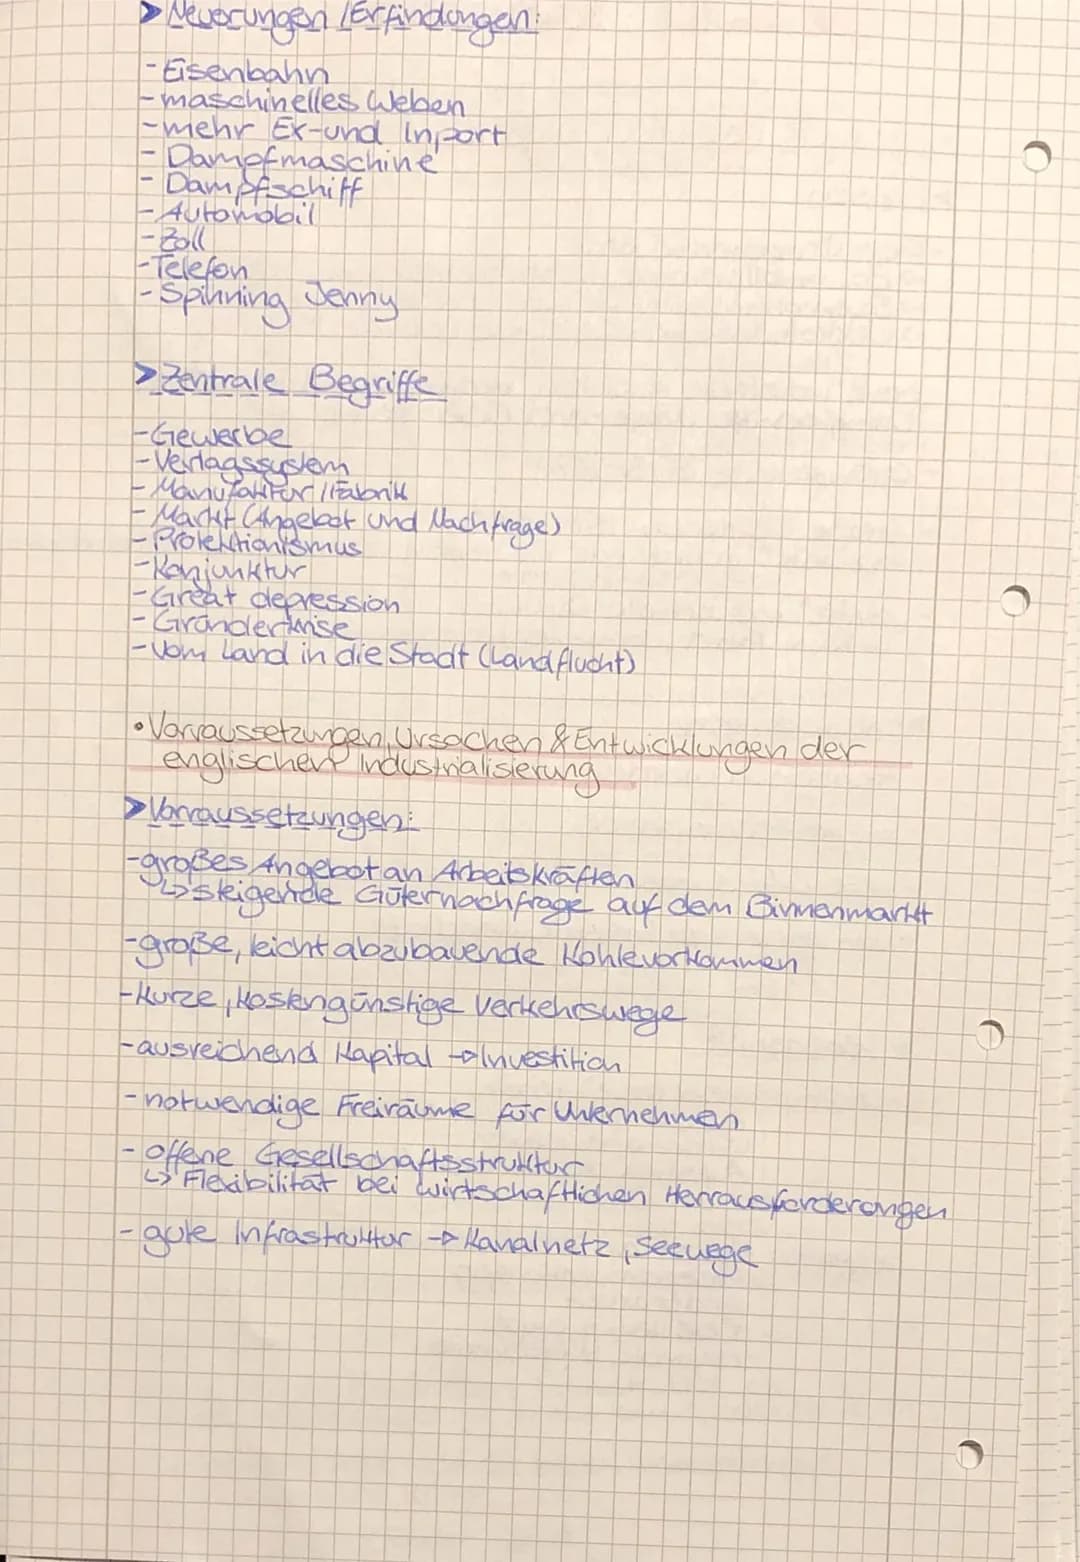 > Neuerungen / Erfindungen:
- Eisenbahn
- maschinelles Weben
- mehr Ex-und Inport
- Dampfmaschine
- Dampfschiff
- Automobil
- Zoll
- Telefon
- Spinning Jenny
> Zentrale Begriffe
- Gewerbe
- Verlagssystem
- Manufaktur / Fabrik
- Markt (Angebot und Nachfrage)
- Protektionismus
- Konjunktur
- Great depression
- Gründerkrise
- Vom Land in die Stadt (Landflucht)
• Vorraussetzungen, Ursachen & Entwicklungen der
englischen Industrialisierung
> Vorraussetzungen:
- großes Angebot an Arbeitskräften
↳ steigende Güternachfrage auf dem Binnenmarkt
- große, leicht abzubauende Kohlevorkommen
- kurze, kostengünstige Verkehrswege
- ausreichend Kapital → Investition
- notwendige Freiräume für Unternehmen
- offene Gesellschaftsstruktur
↳ Flexibilität bei wirtschaftlichen Herrausforderungen
- gute Infrastruktur → Kanalnetz, Seewege